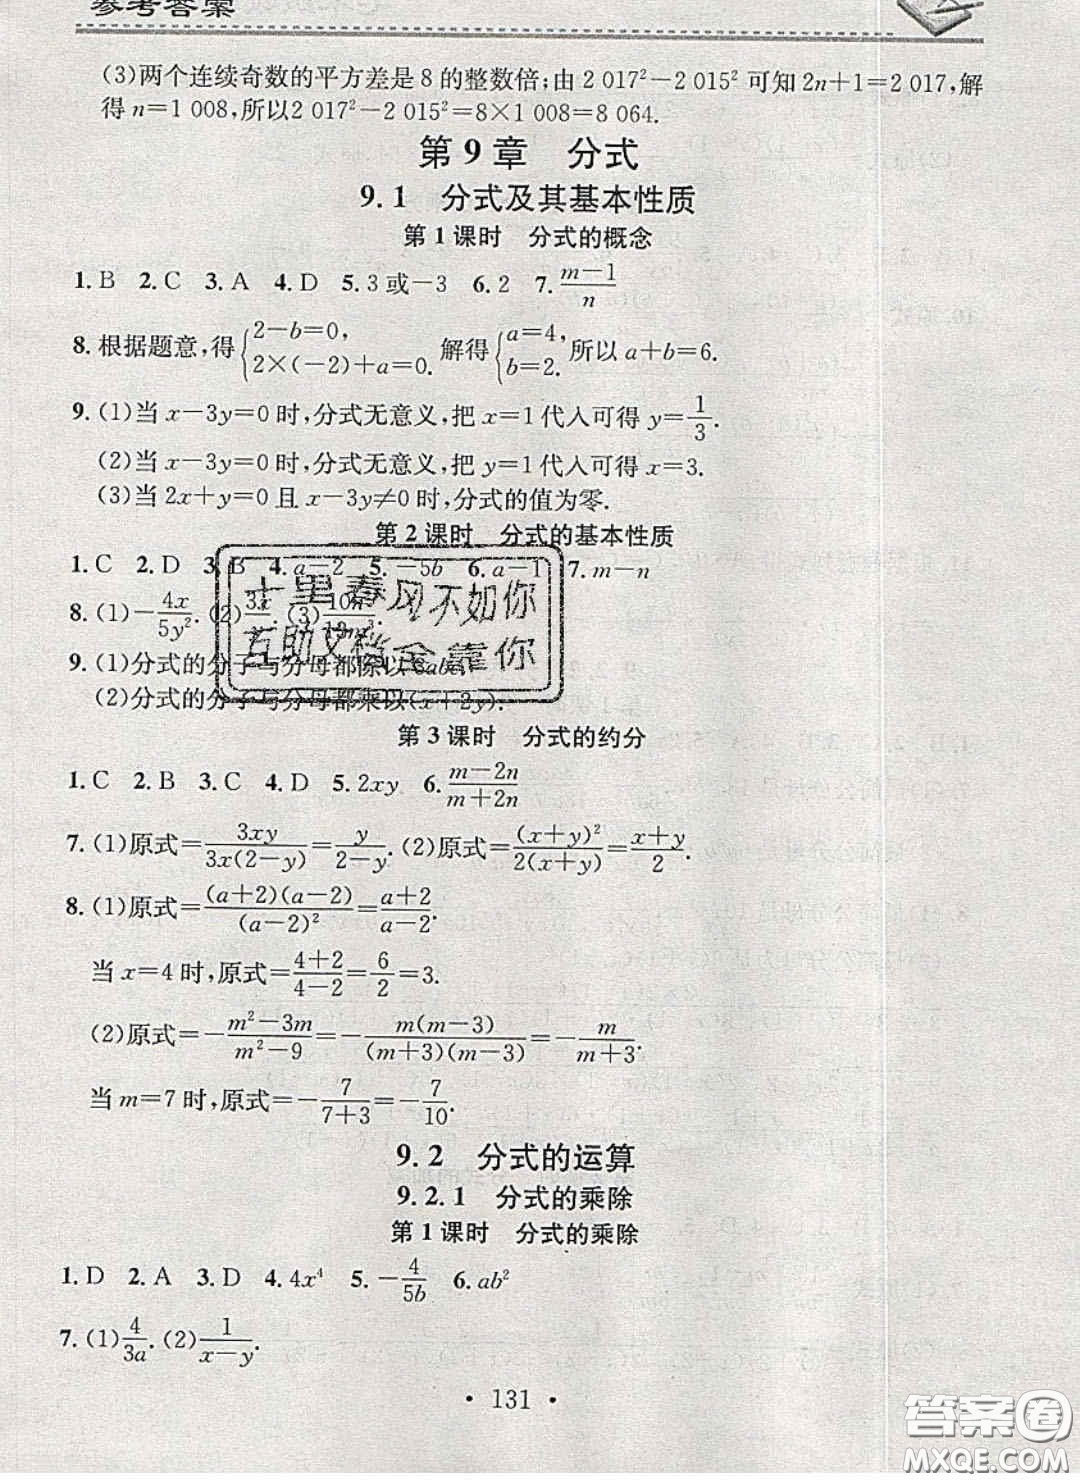 参考答案
(3)两个连续奇数的平方差是8的整数倍;由2 017²-2 015²可知2n+1=2 017,解
得n=1 008,所以2 017²-2 015²=8×1 008=8 064.
第9章 分式
9.1 分式及其基本性质
第1课时 分式的概念
1.B 2.C 3.A 4.D 5.3或-3 6.2 7.(m-1)/n
8.根据题意,得{2-b=0, 2×(-2)+a=0. 解得{a=4, b=2. 所以a+b=6.
9.(1)当x-3y=0时,分式无意义,把x=1代入可得y=1/3.
(2)当x-3y=0时,分式无意义,把y=1代入可得x=3.
(3)当2x+y=0且x-3y≠0时,分式的值为零.
第2课时 分式的基本性质
1.C 2.D 3.B 4.a-2 5.-5b 6.a-1 7.m-n
8.(1)-4x/5y².(2)3x .(3)10n
9.(1)分式的分子与分母都除以
(2)分式的分子与分母都乘以(x+2y).
十里春风不如你
互助文档金靠你
第3课时 分式的约分
1.C 2.B 3.C 4.D 5.2xy 6.(m-2n)/(m+2n)
7.(1)原式=3xy/3x(2-y)=y/(2-y).(2)原式=(x+y)²/2(x+y)=(x+y)/2.
8.(1)原式=(a+2)(a-2)/(a-2)²=(a+2)/(a-2).
当x=4时,原式=(4+2)/(4-2)=6/2=3.
(2)原式=-(m²-3m)/(m²-9)=-m(m-3)/(m+3)(m-3)=-m/(m+3).
当m=7时,原式=-7/(7+3)=-7/10.
9.2 分式的运算
9.2.1 分式的乘除
第1课时 分式的乘除
1.D 2.A 3.D 4.4x⁴ 5.-4/5b 6.ab²
7.(1)4/3a.(2)1/(x-y).
· 131 ·
答案圈
MXQE.COM